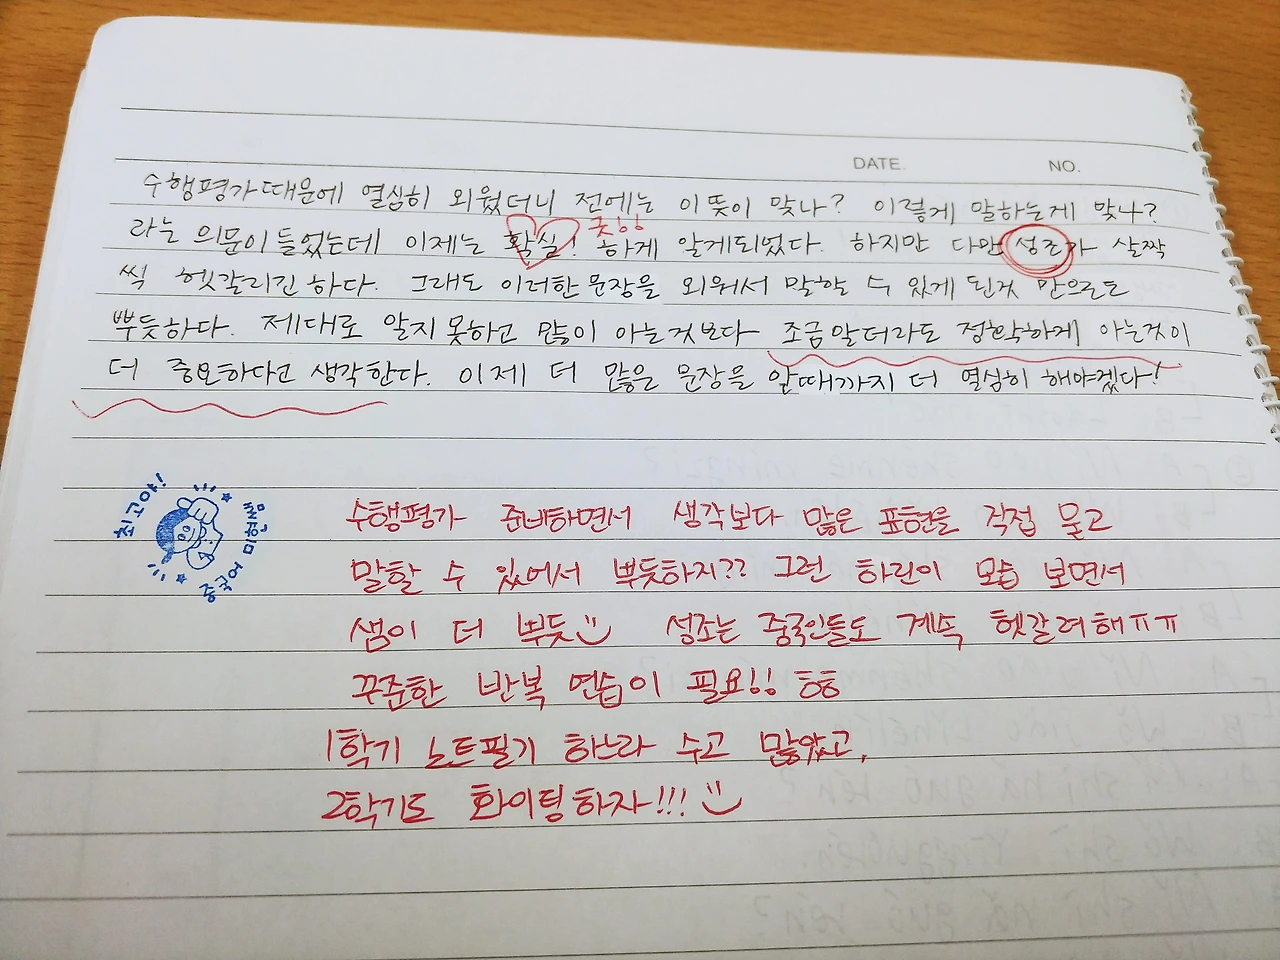 DATE. NO.
수행평가때문에 열심히 외웠더니 전에는 이뜻이 맞나? 이렇게 말하는게 맞나?
굿!!
라는 의문이 들었는데 이제는 확실! 하게 알게되었다. 하지만 다만 성조가 살짝
씩 헷갈리긴 하다. 그래도 이러한 문장을 외워서 말할 수 있게 된것 만으로도
뿌듯하다. 제대로 알지못하고 많이 아는것보다 조금알더라도 정확하게 아는것이
더 중요하다고 생각한다. 이제 더 많은 문장을 알때까지 더 열심히 해야겠다!
최고야!
수행평가 준비하면서 생각보다 많은 표현을 직접 묻고
말할 수 있어서 뿌듯하지?? 그런 하린이 모습 보면서
샘이 더 뿌듯 성조는 중국인들도 계속 헷갈려해ㅠㅠ
꾸준한 반복 연습이 필요!! ㅎㅎ
1학기 노트필기 하느라 수고 많았고,
2학기도 화이팅하자!!!